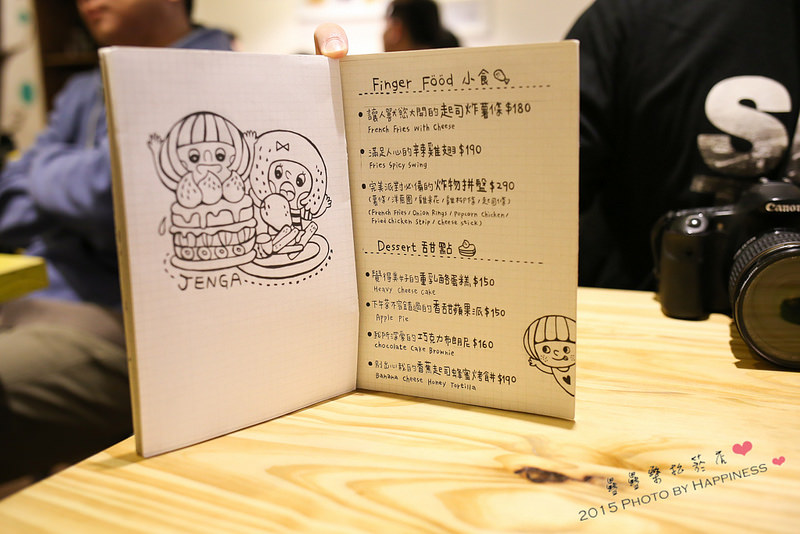 JENGA
Finger Food 小食
讓人獸慾大開的起司炸薯條 $180
French Fries with Cheese
滿足人心的辣雞翅 $190
Fries Spicy Swing
完美派對必備的炸物拼盤 $290
(薯條/洋蔥圈/雞米花/雞柳條/起司條)
(French Fries/Onion Rings/Popcorn Chicken/
Fried Chicken Strip/cheese stick)
Dessert 甜點
覺得美好的重乳酪蛋糕 $150
Heavy Cheese Cake
下午茶不容錯過的香甜蘋果派 $150
Apple Pie
的巧克力布朗尼 $160
chocolate Cake Brownie
別出心裁的香蕉起司蜂蜜烤餅 $190
Banana Cheese Honey Tortilla
S
Canon
疊疊樂松菸店
2015 Photo by Happiness